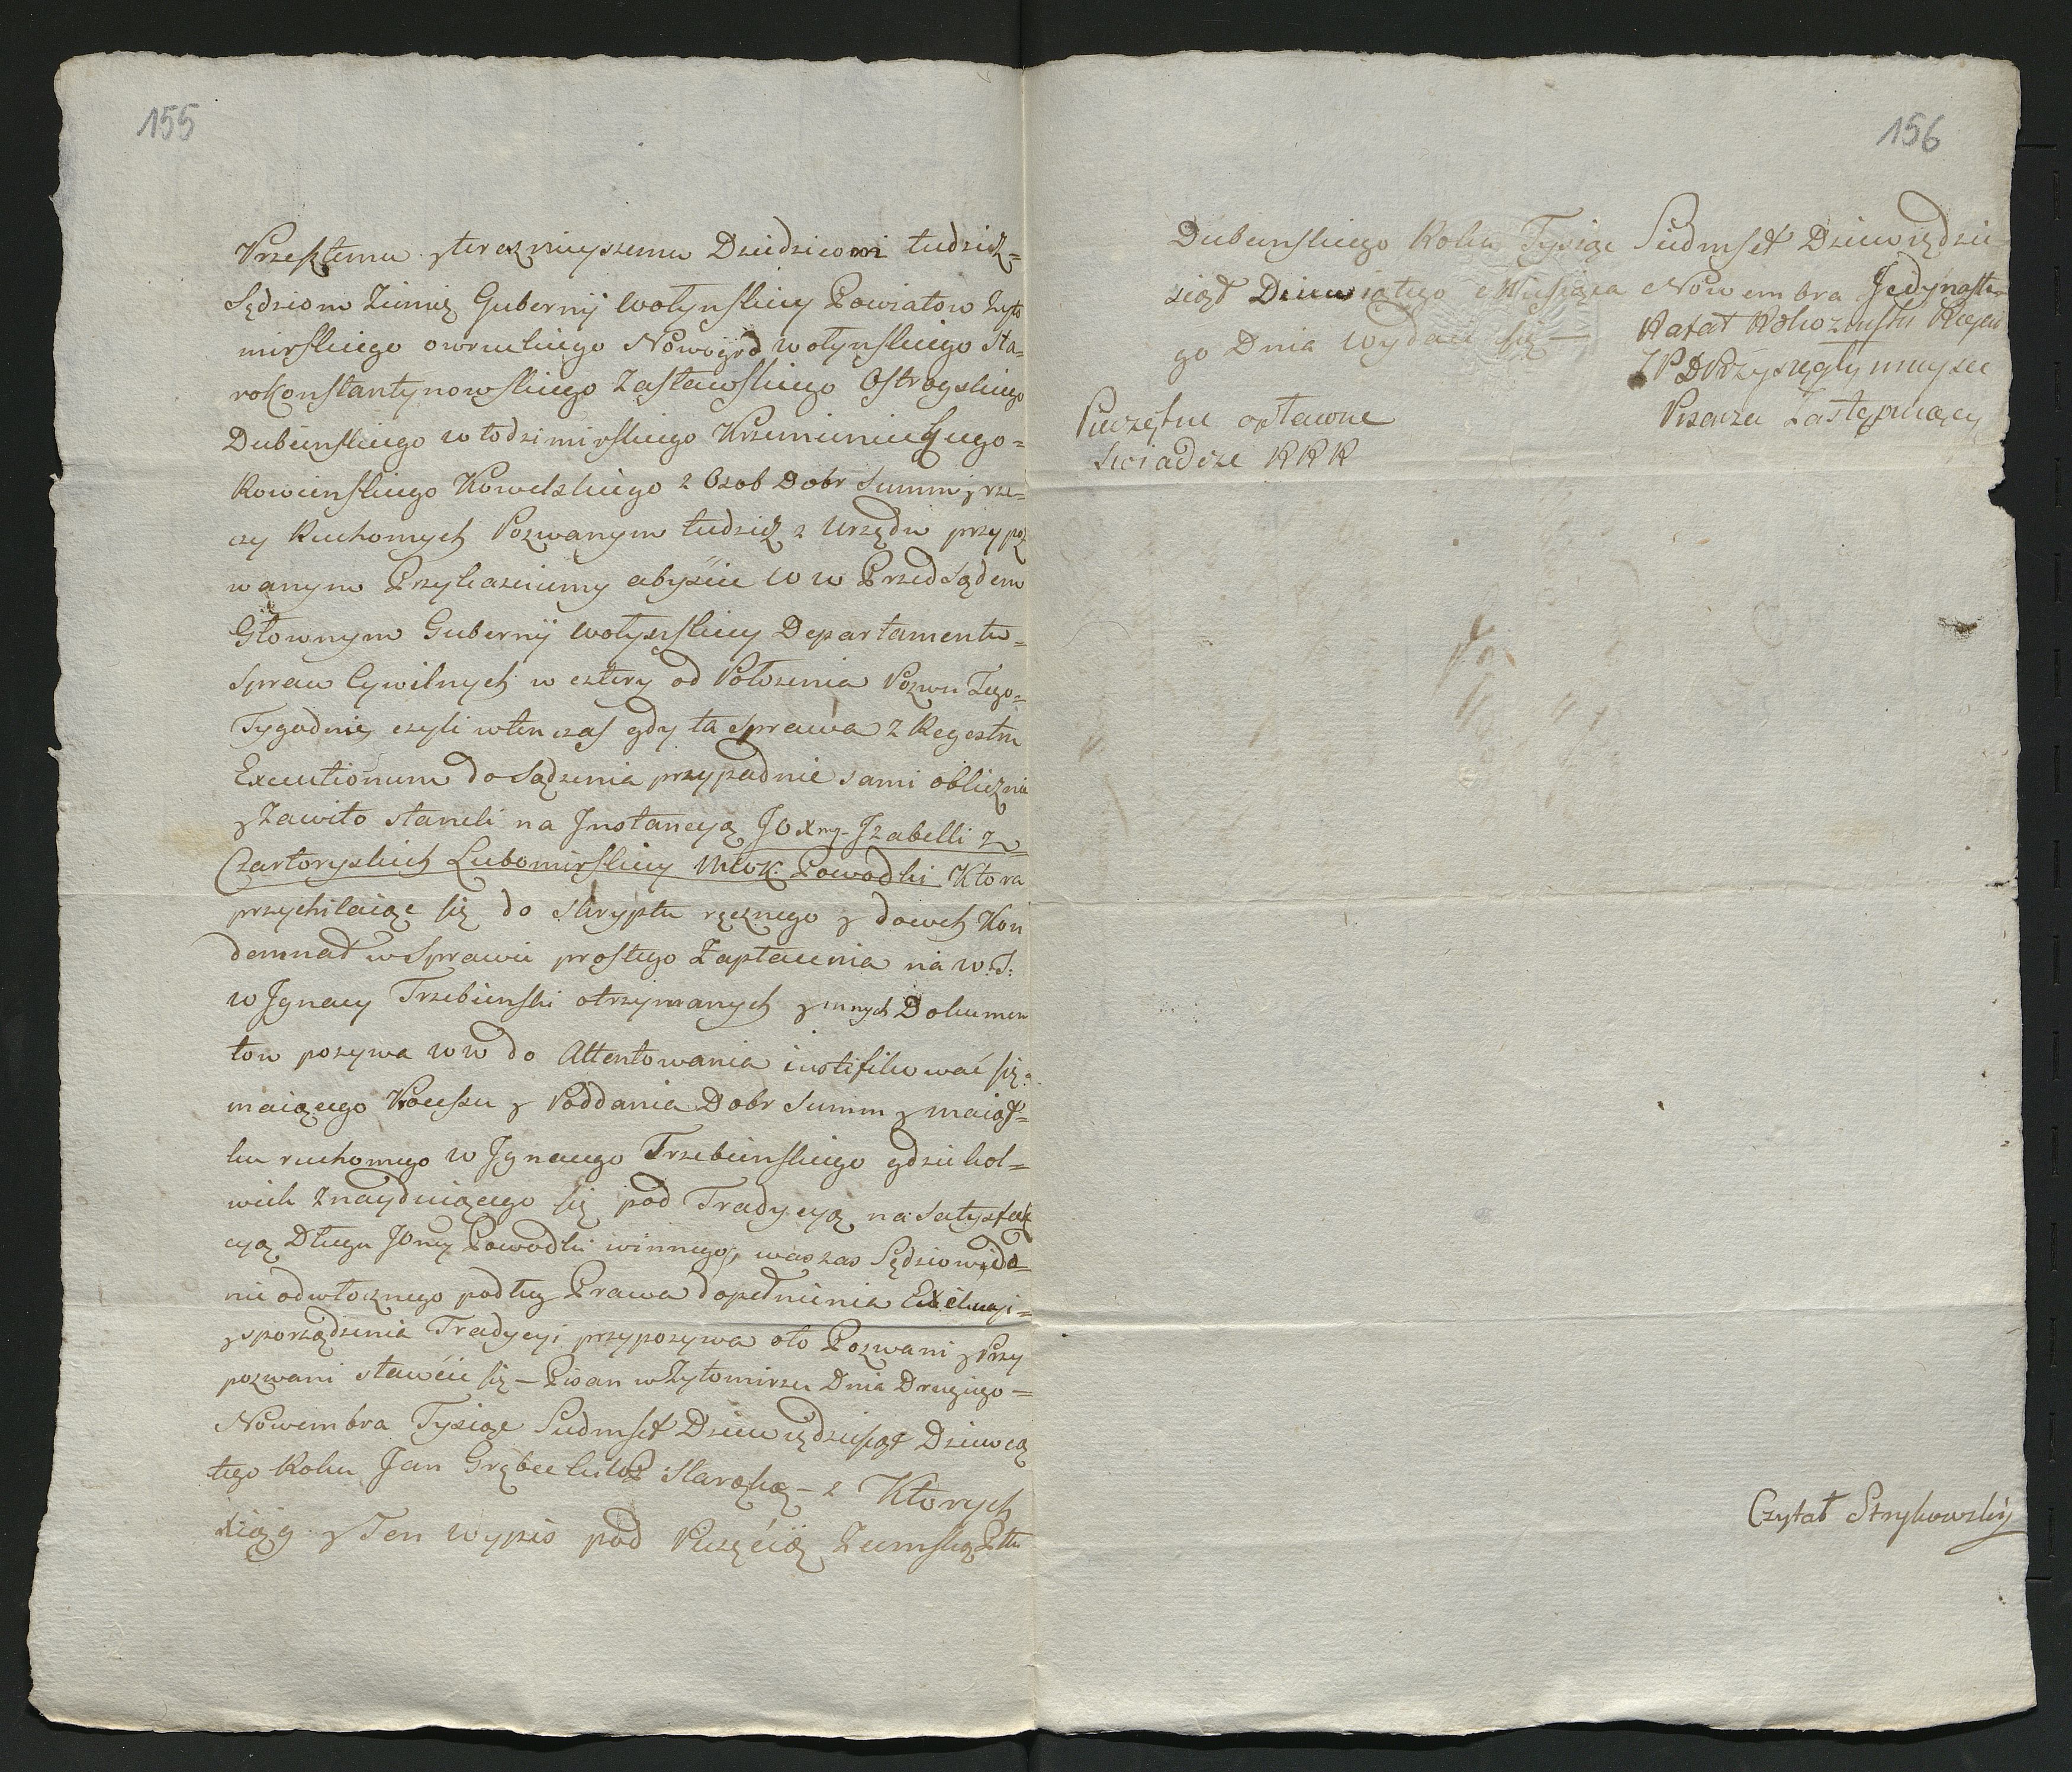 155
Krzesłemu y teraznieyszemu Dziedzicowi tudzież=
Sędziom Ziemię Gubernij Wołynskiey Powiatow Żyto
mirskiego owruckiego Nowogrod wołynskiego Sta=
rokonstantynowskiego Zasławskiego Ostrogskiego
Dubienskiego włodzimirskiego Krzemienieckiego=
Rowienskiego Kowelskiego z Osob Dobr Summ y rze=
czy Ruchomych Pozwanym tudzież z Urzędu przypoz
wanym Przykazuiemy abyście WW Przed Sądem
Głownym Gubernij wołynskiey Departamentu=
Spraw Cywilnych w cztery od Położenia Pozwu Tego=
Tygodnie czyli wten czas gdy ta sprawa z Regestru
Executionum do Sądzenia przypadnie sami oblicznie
y Zawito staneli na Instancyą JOXny Izabelli z
Czartoryskich Lubomirskiey MWK. Powodki Ktora
przychilaiąc się do skryptu ręcznego y dowch Kon
demnat w Sprawie prostego Zapłacenia na W: S:
W Ignacy Trzebienski otrzymanych y innych Dokumen
tow pozywa WW do Attentowania iustifikować się=
maiącego Kocessu y Poddania Dobr Summ y maiąt=
ku ruchomego W Ignacego Trzebienskiego gdzie kol=
wiek Znayduiącego się pod Tradycyą na Satysfak
cyą Długu JOney Powodki winnego, was zas Sędziow do=
nieodwłocznego podług Prawa dopełnienia Exekucyi=
y sporządzenia Tradycyi przypozywa oto Pozwani y Przy
pozwani stawcie się – Pisan w Żytomirzu Dnia Drugiego=
Nowembra Tysiąc Siedmset Dziewiędziesiąt Dziewią
tego Roku Jan – z Ktorych
Xiąg y Ten wypis pod Pieczęcią Ziemską Pttu
156
Dubienskiego Roku Tysiąc Siedmset Dziewiędzie
siąt Dziewiątego Miesiąca Nowembra Jedynaste
go Dnia wydaie się –
Rafał
Przysięgły mieysce
Pisarza Zastępuiący
Pieczętne opłacone
Swiadcze RRR
Czytał Strykowskiy